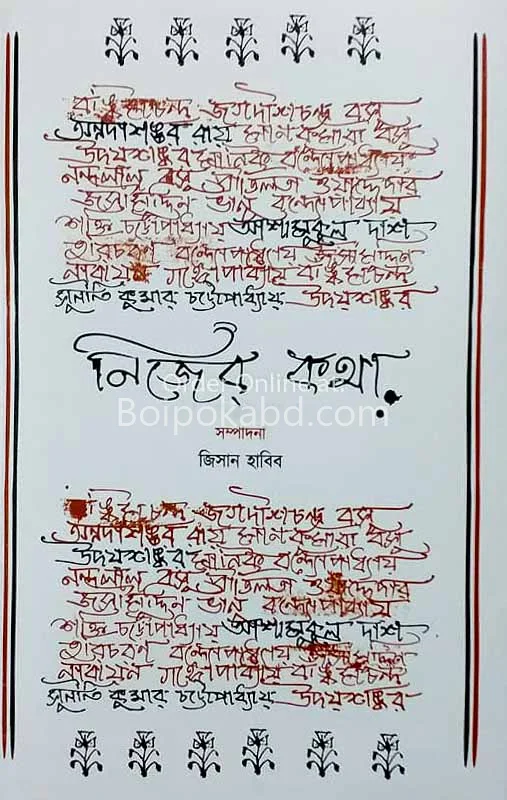 বঙ্কিমচন্দ্র জগদীশচন্দ্র বসু
অন্নদাশঙ্কর রায় মানকুমারী বসু
উদয়শঙ্কর মানিক বন্দ্যোপাধ্যায়
নন্দলাল বসু প্রীতিলতা ওয়াদ্দেদার
জসীমউদ্দিন ভানু বন্দ্যোপাধ্যায়
শক্তি চট্টোপাধ্যায় আশাপূর্ণা দাশ
তারাচরণ বন্দ্যোপাধ্যায় জসীমউদ্দিন
নারায়ণ গঙ্গোপাধ্যায় বঙ্কিমচন্দ্র
সুনীতি কুমার চট্টোপাধ্যায় উদয়শঙ্কর
নিজের কথা
Order Online at
Boipokabd.com
সম্পাদনা
জিসান হাবিব
বঙ্কিমচন্দ্র জগদীশচন্দ্র বসু
অন্নদাশঙ্কর রায় মানকুমারী বসু
উদয়শঙ্কর মানিক বন্দ্যোপাধ্যায়
নন্দলাল বসু প্রীতিলতা ওয়াদ্দেদার
ভানু বন্দ্যোপাধ্যায়
শক্তি চট্টোপাধ্যায় দাশ
বন্দ্যোপাধ্যায়
নারায়ন গঙ্গোপাধ্যায় বঙ্কিমচন্দ্র
সুনীতি কুমার চট্টোপাধ্যায় উদয়শঙ্কর